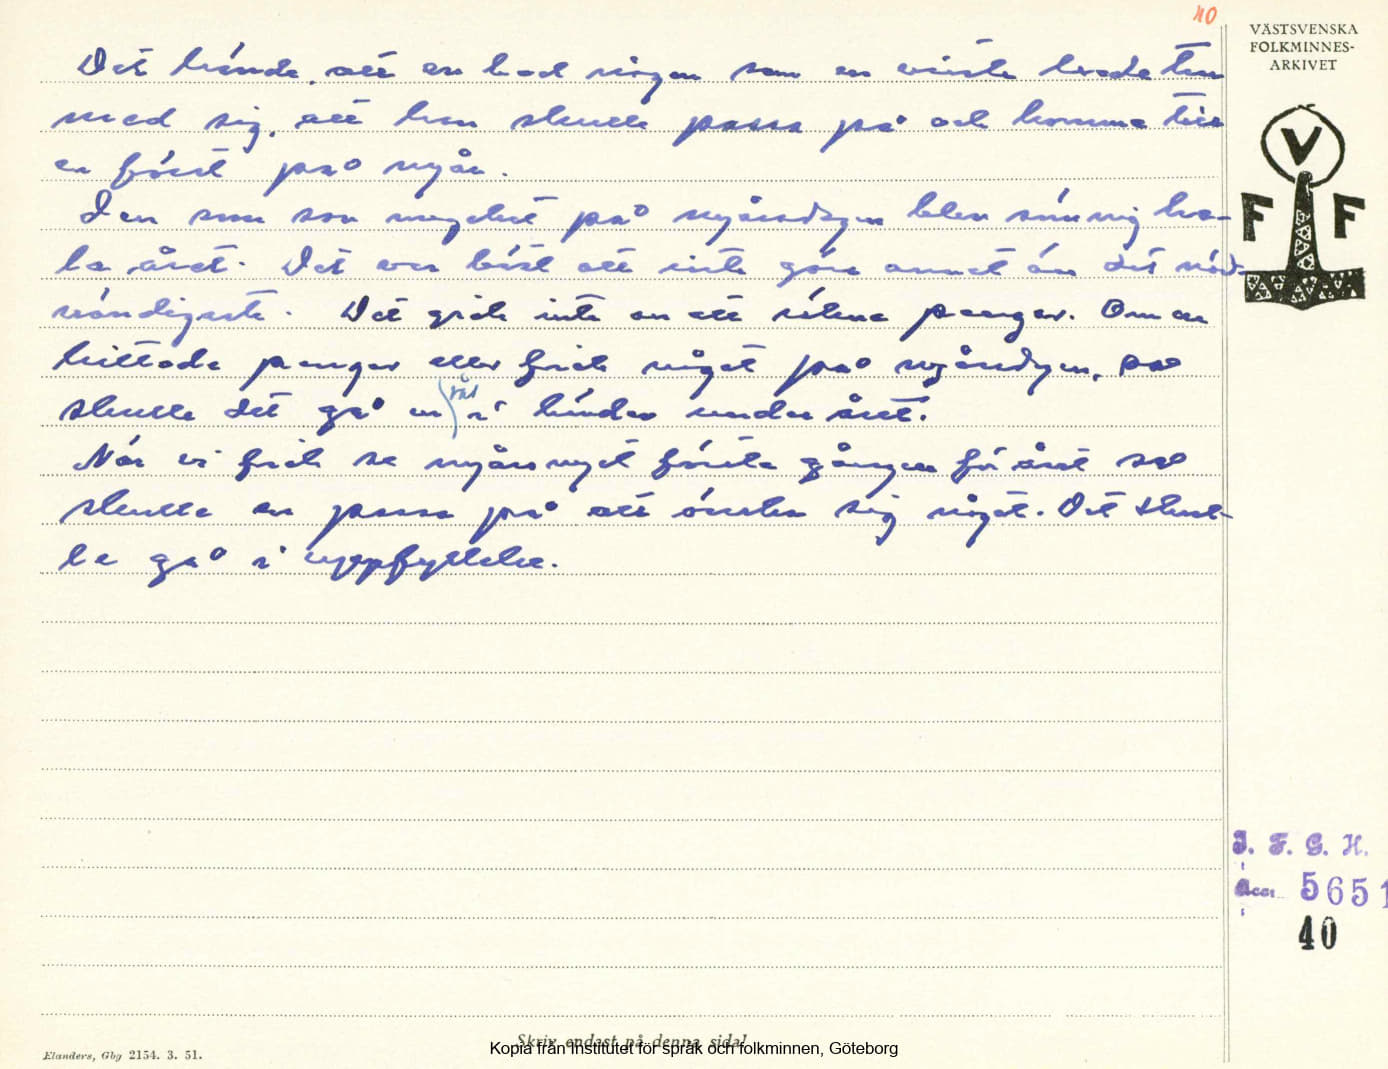 40
VÄSTSVENSKA
FOLKMINNES-
ARKIVET
Det hände att en bad någon som en visste hade tur
med sig, att han skulle passa på och komma till
en först på nyår.
Den som sov mycket på nyårsdagen blev sömnig he-
la året. Det var bäst att inte göra annat än det nöd-
vändigaste. Det gick inte an att räkna pengar. Om en
hittade pengar eller fick något på nyårsdagen, så
skulle det gå en väl i händer under året.
När vi fick se nyårsnyet första gången för året så
skulle en passa på att önska sig något. Det skul-
le gå i uppfyllelse.
V
F F
I. F. G. H.
Acc. 5651
40
Skriv endast på denna sida!
Kopia från Institutet för språk och folkminnen, Göteborg
Elanders, Gbg 2154. 3. 51.